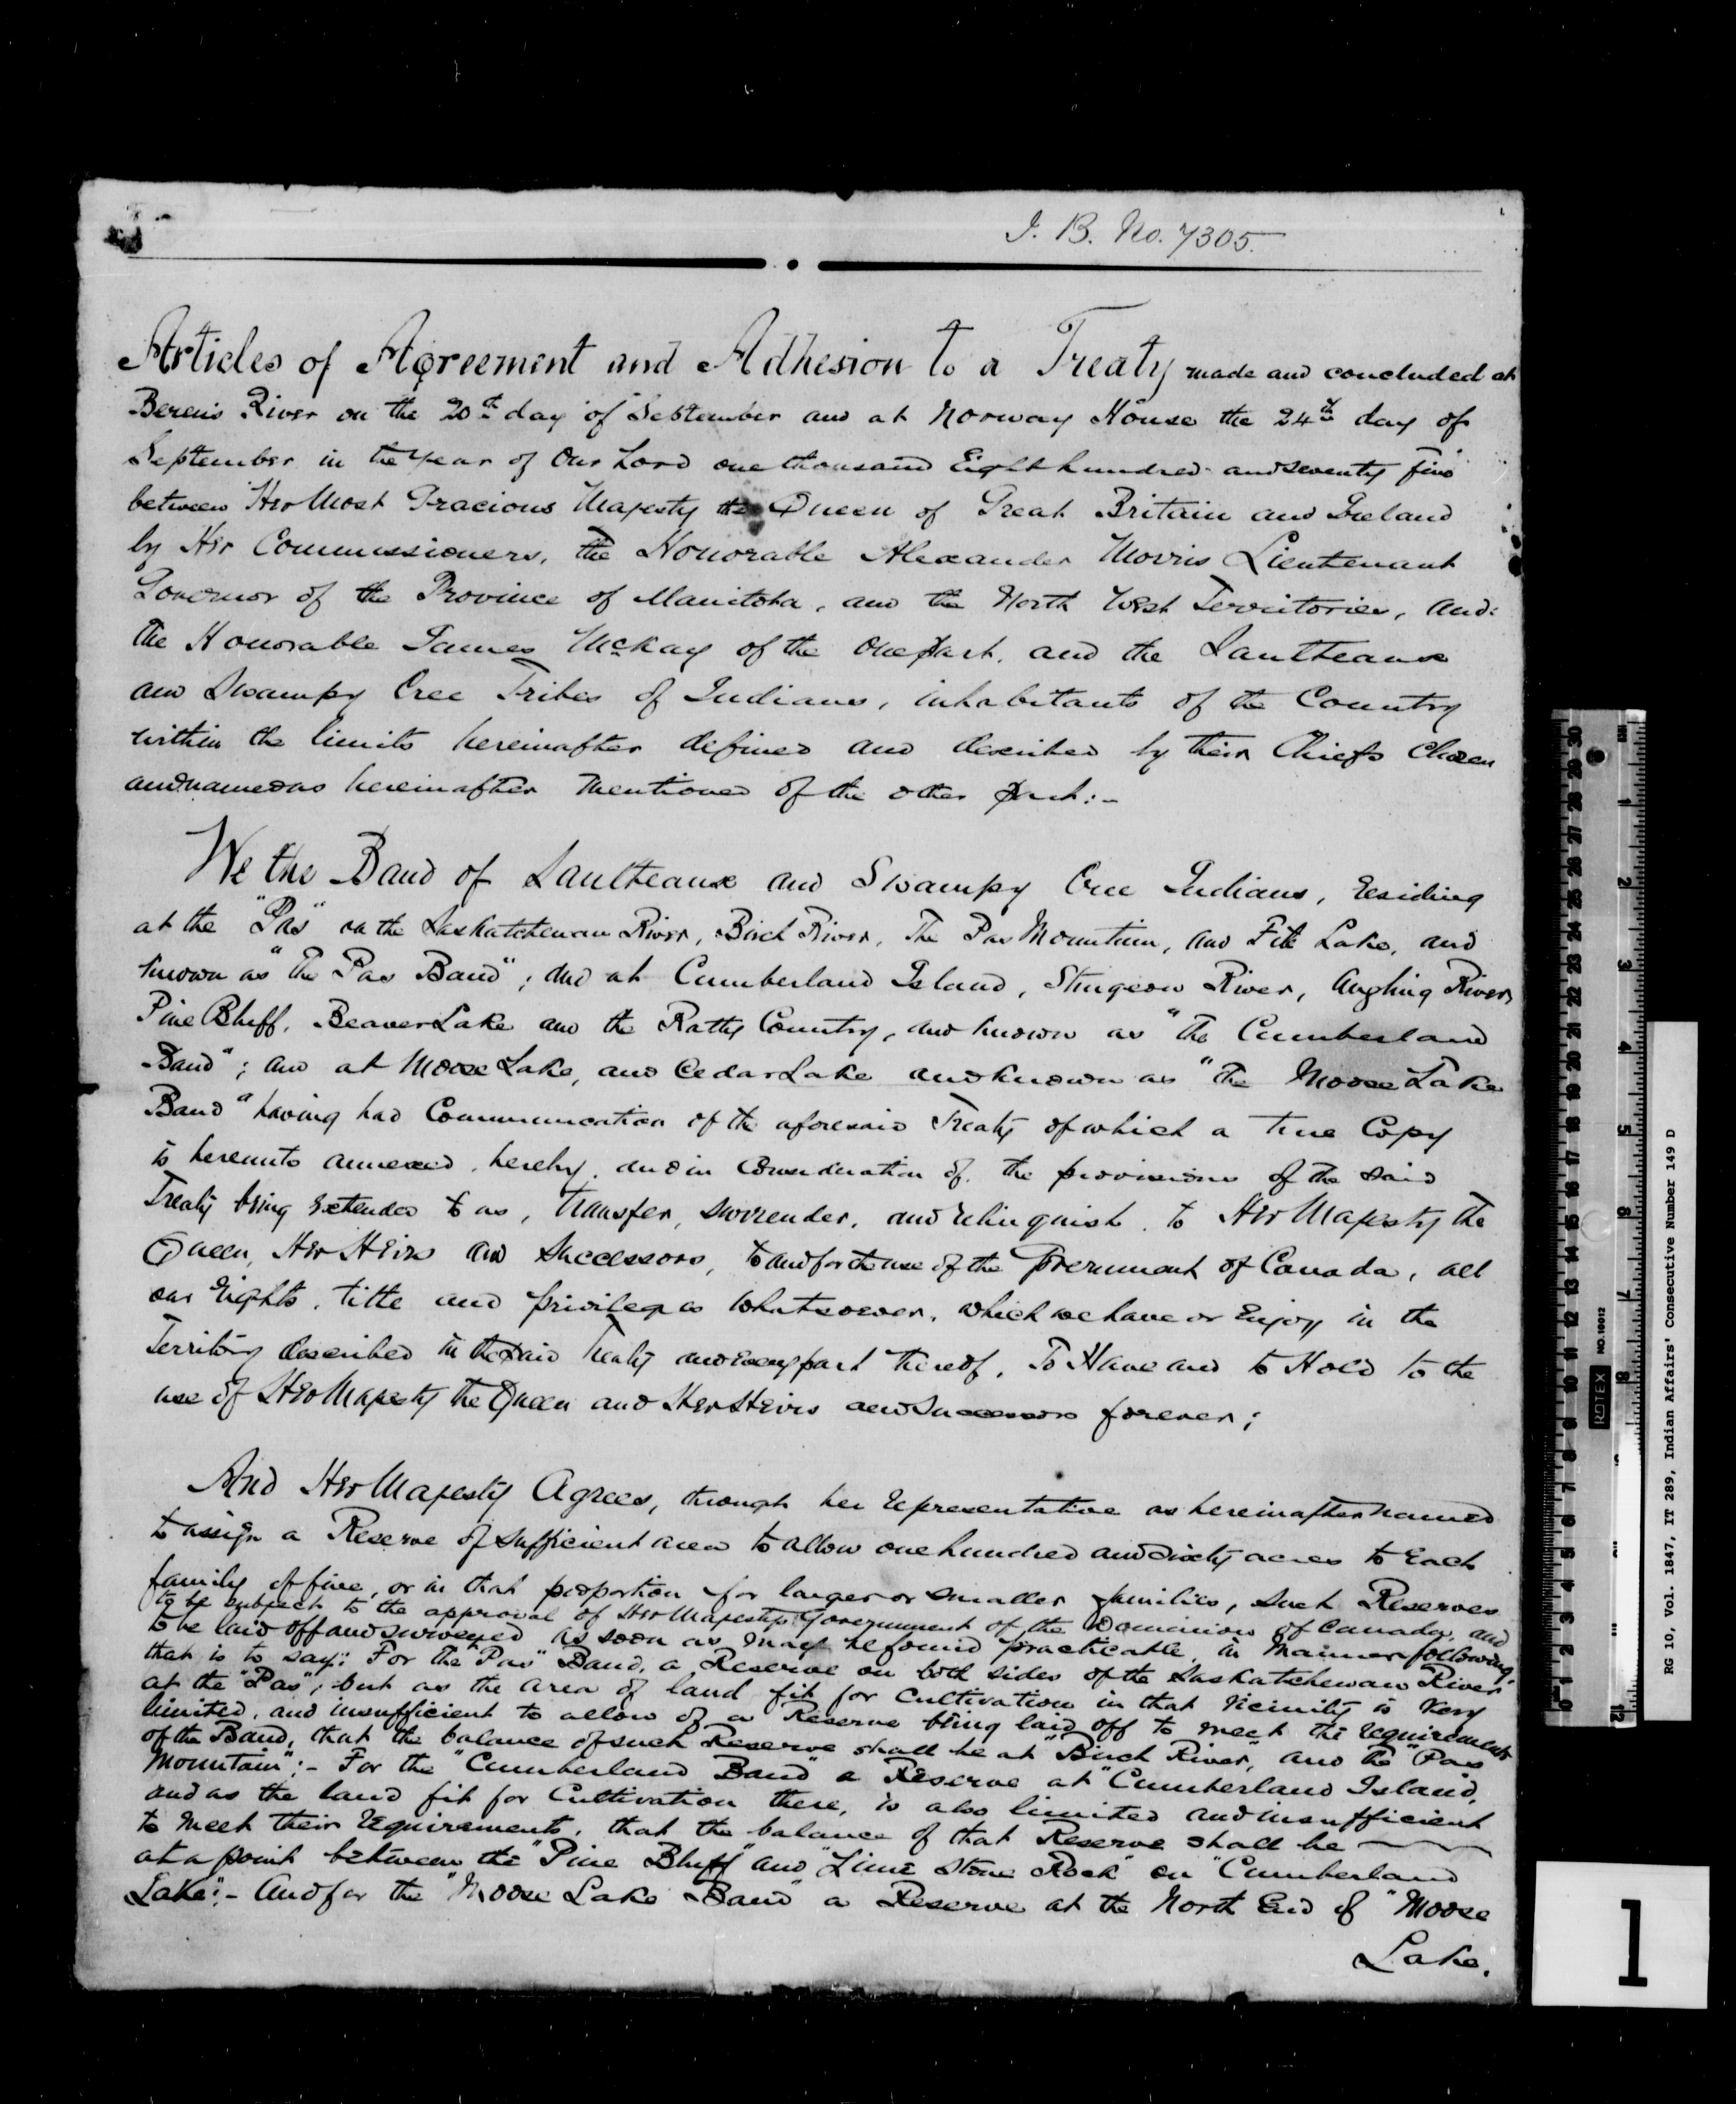 I. B. No. 7305.
Articles of Agreement and Adhesion to a Treaty made and concluded at
Berens River on the 20th day of September and at Norway House the 24th day of
September in the Year of Our Lord one thousand Eight hundred and seventy five
between Her Most Gracious Majesty the Queen of Great Britain and Ireland
by Her Commissioners, the Honorable Alexander Morris Lieutenant
Governor of the Province of Manitoba, and the North West Territories, and
the Honorable James McKay of the one part, and the Saulteaux
and Swampy Cree Tribes of Indians, inhabitants of the Country
within the limits hereinafter defined and described by their Chiefs Chosen
and named as hereinafter Mentioned of the other part:-
We the Band of Saulteaux and Swampy Cree Indians, residing
at the "Pas" on the Saskatchewan River, Birch River, The Pas Mountain, and File Lake, and
known as "the Pas Band"; and at Cumberland Island, Sturgeon River, Angling River,
Pine Bluff, Beaver Lake and the Ratty Country, and known as "the Cumberland
Band"; and at Moose Lake, and Cedar Lake and known as "the Moose Lake
Band" having had Communication of the aforesaid Treaty of which a true Copy
is hereunto annexed, hereby, and in Consideration of the provisions of the said
Treaty being extended to us, transfer, surrender, and relinquish, to Her Majesty the
Queen, Her Heirs and Successors, to and for the use of the Government of Canada, all
our rights, title and privileges whatsoever, which we have or enjoy in the
Territory described in the said Treaty and every part thereof, To Have and to Hold to the
use of Her Majesty the Queen and Her Heirs and Successors forever;
And Her Majesty Agrees, through her representative as hereinafter named
to assign a Reserve of sufficient area to allow one hundred and sixty acres to Each
family of five, or in that proportion for larger or smaller families, such Reserves
to be subject to the approval of Her Majesty's Government of the Dominion of Canada, and
to be laid off and surveyed as soon as may be found practicable, in manner following,
that is to say: For the "Pas" Band, a Reserve on both sides of the Saskatchewan River
at the "Pas"; but as the area of land fit for cultivation in that vicinity is very
limited, and insufficient to allow of a Reserve being laid off to meet the requirements
of the Band, that the balance of such Reserve shall be at "Birch River", and the "Pas
Mountain":- For the "Cumberland Band" a Reserve at "Cumberland Island,
and as the land fit for Cultivation there, is also limited and insufficient
to meet their requirements, that the balance of that Reserve shall be
at a point between the "Pine Bluff" and "Lime Stone Rock" on "Cumberland
Lake":- And for the "Moose Lake Band" a Reserve at the North End of "Moose
Lake.
RG 10, Vol. 1847, IT 289, Indian Affairs' Consecutive Number 149 D
ROTEX
NO.10012
1